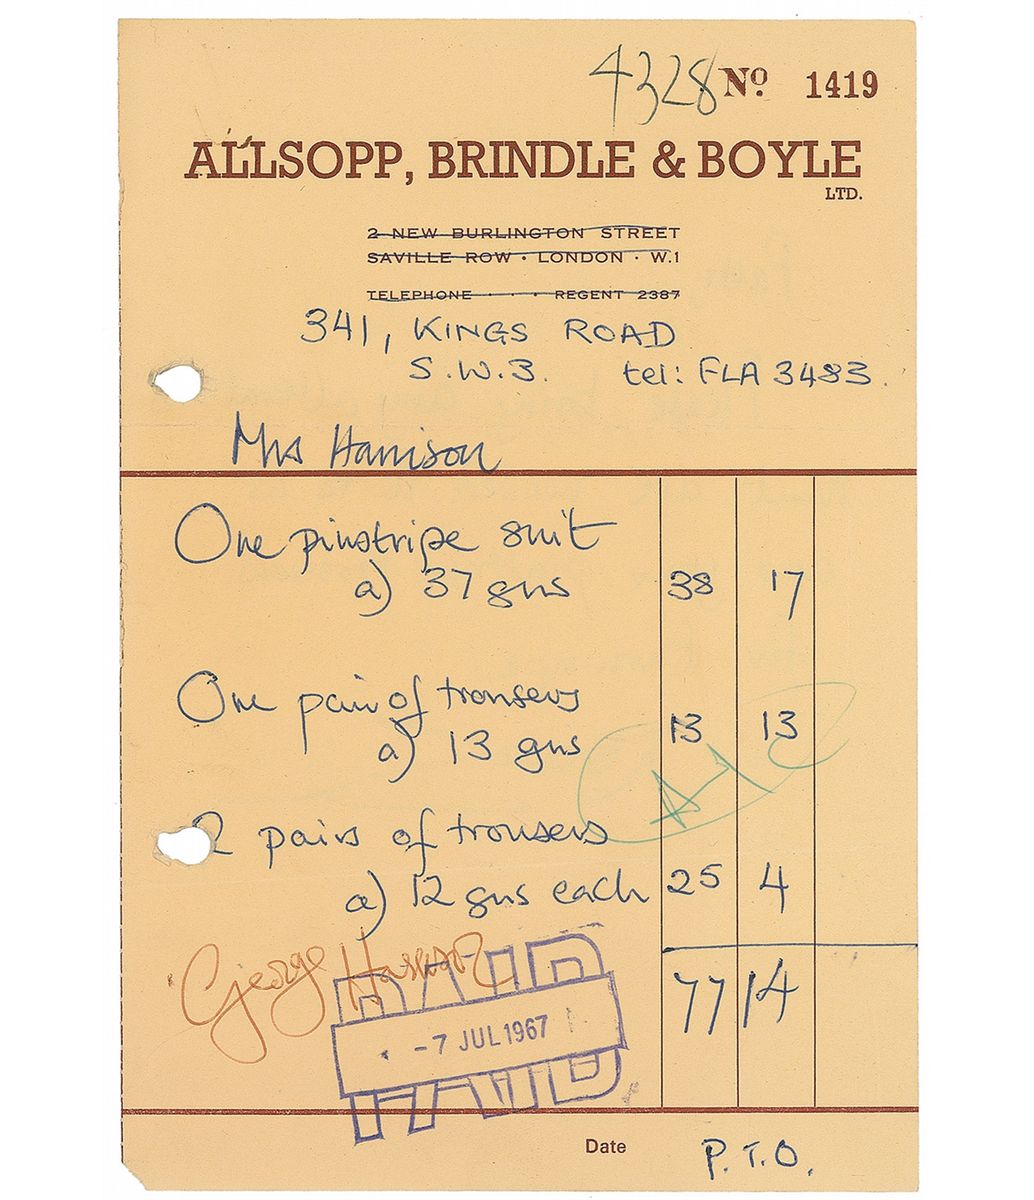 4328 Nº 1419
ALLSOPP, BRINDLE & BOYLE
LTD.
2 NEW BURLINGTON STREET
SAVILLE ROW · LONDON · W.1
TELEPHONE · · · REGENT 2387
341, KINGS ROAD
S.W.3. tel: FLA 3483.
Mrs Harrison
One pinstripe suit
a) 37 gns 38 17
One pair of trousers
a) 13 gns 13 13
2 pairs of trousers
a) 12 gns each 25 4
George Harrison
77 14
PAID
-7 JUL 1967
PAID
Date P.T.O.